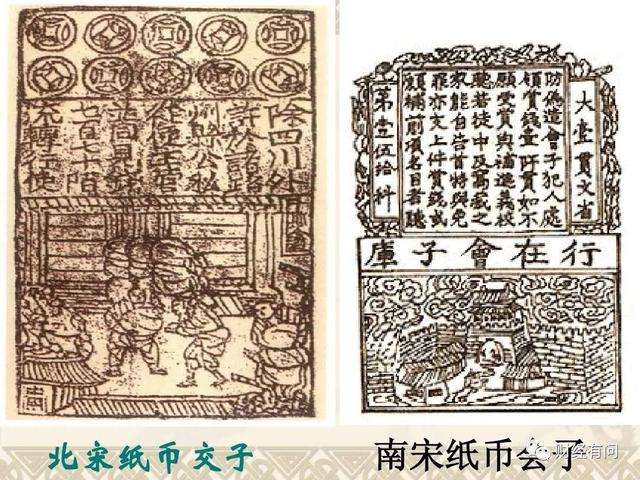 除四川外
許於諸路
州縣公私
從便主管
並同見錢
七百七十陌
流轉行使
大壹貫文省
防偽造會子犯人處
領賞錢壹阡貫如不
願受賞與補進義校
聽若徒中及窩藏之
家能自告首特與免
罪亦支上件賞錢或
願補前項名目者聽
第壹伍拾料
行在會子庫
北宋纸币交子
南宋纸币会子
财经有问